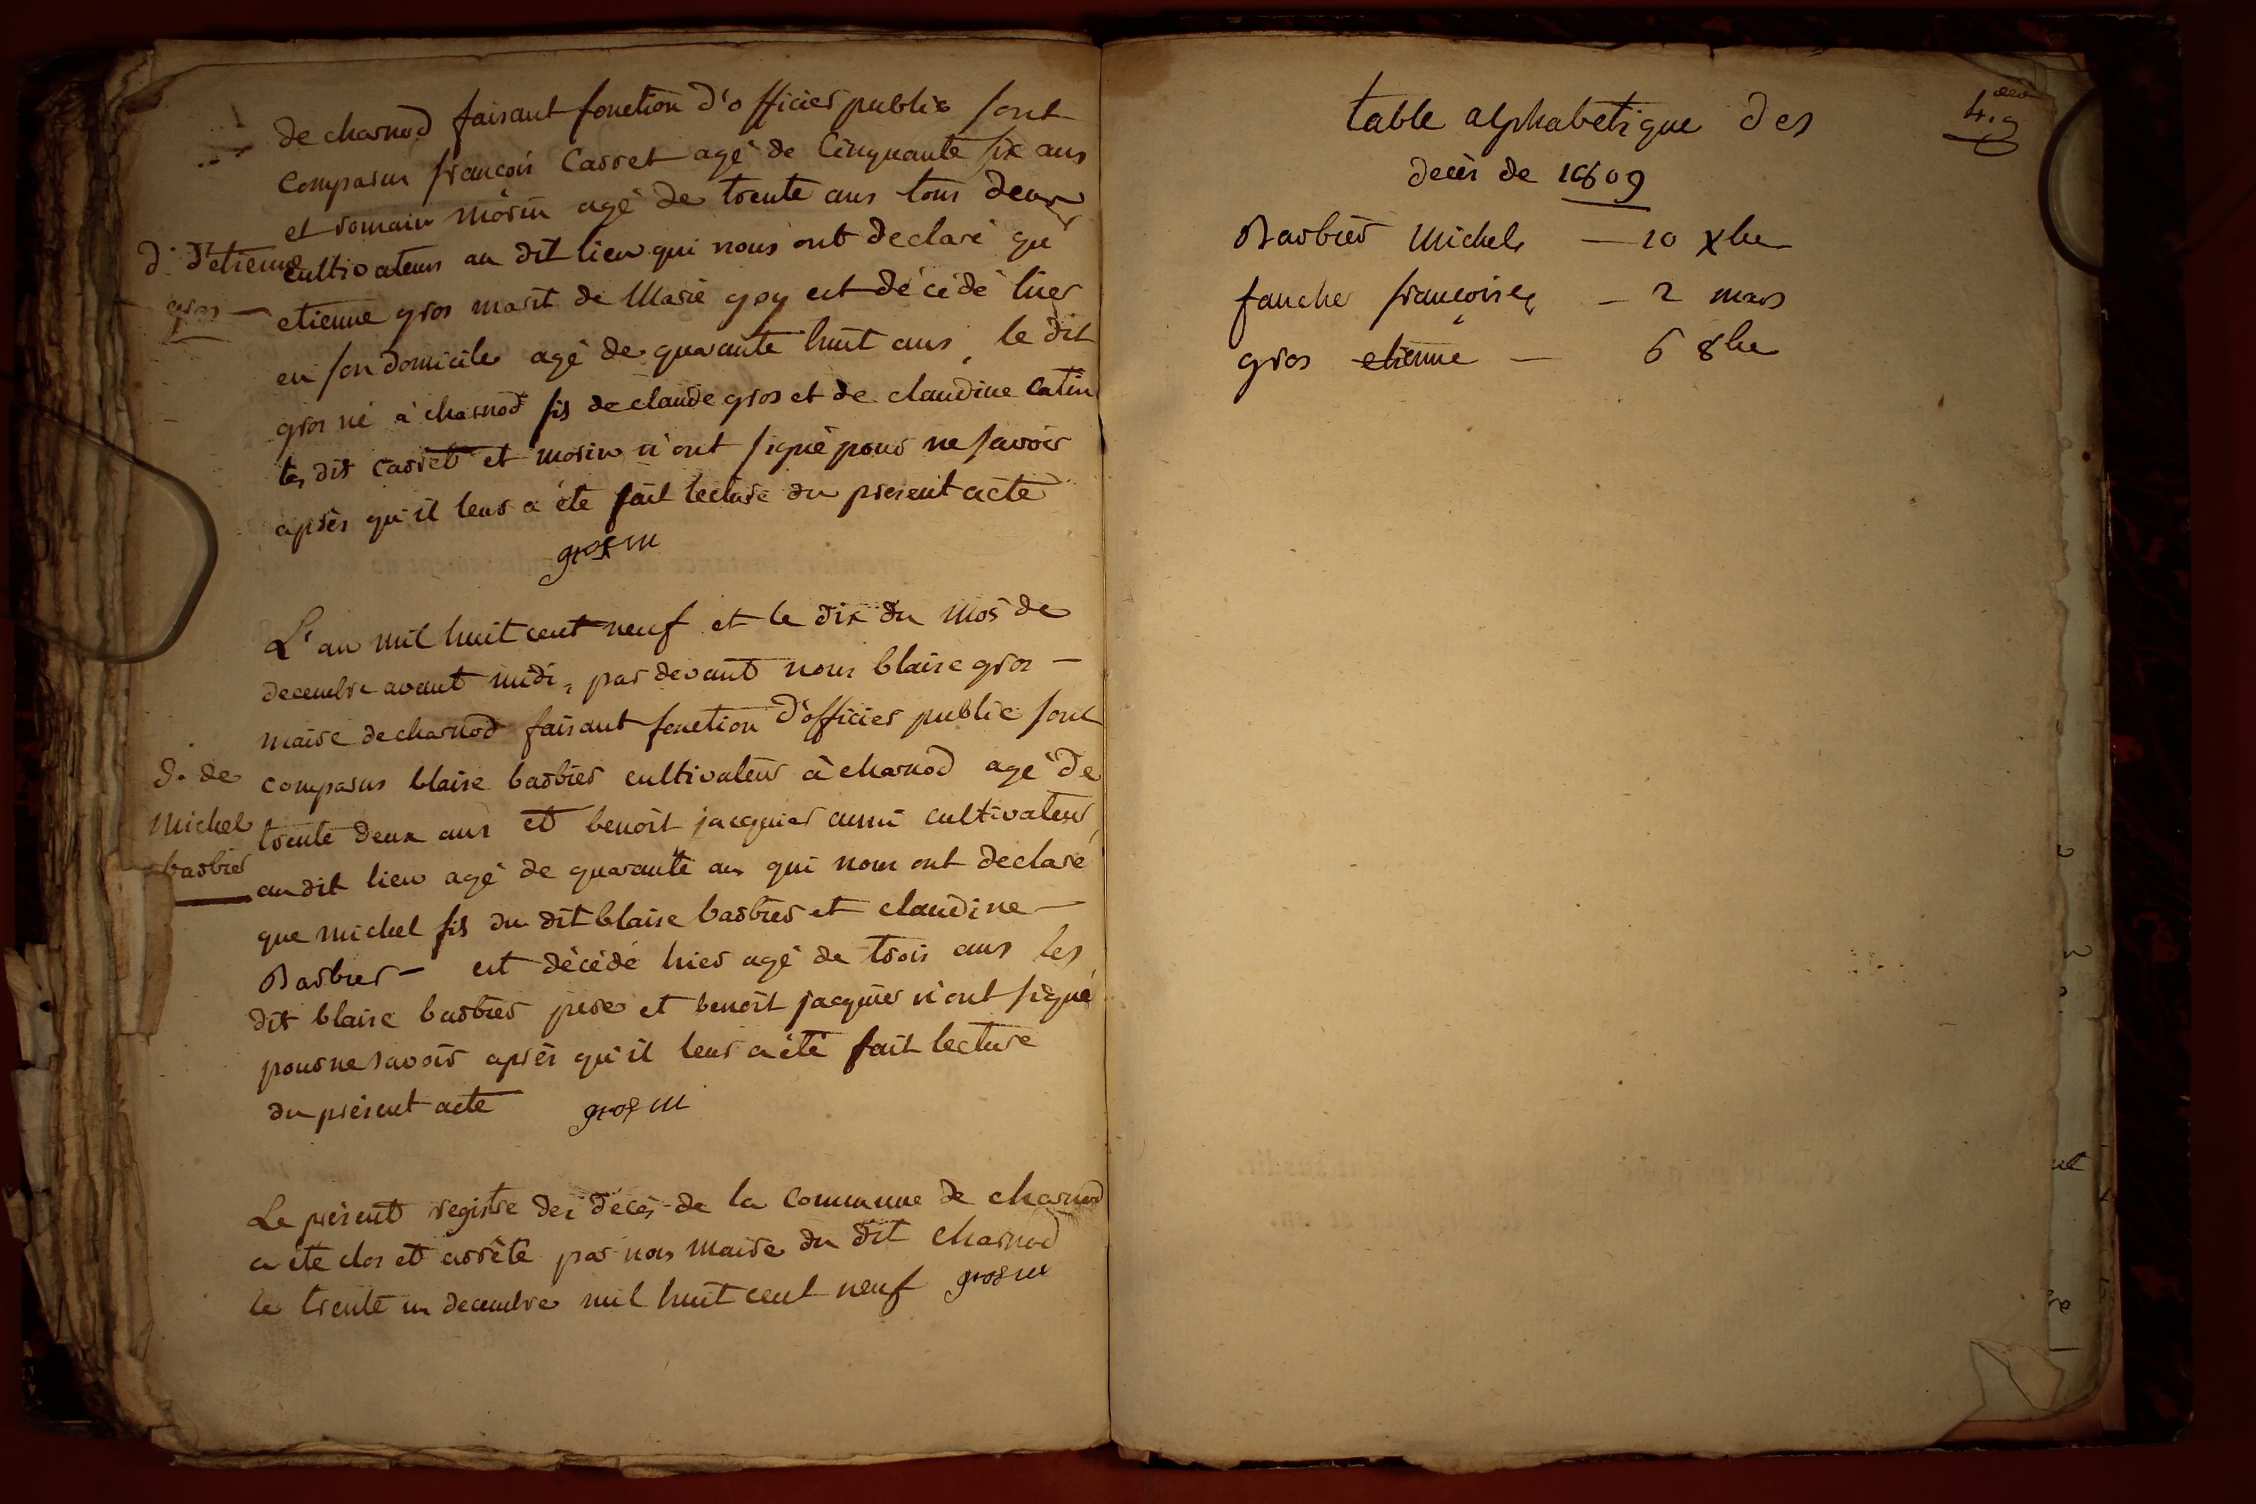 de charnod faisant fonction d'officier public sont
comparus françois Carret agé de Cinquante six ans
et romain morin agé de trente ans tous deux
d. d'etienne
gros
cultivateurs au dit lieu qui nous ont declaré qu'
etienne gros marit de Marie goy est décédé hier
en son domicile agé de quarante huit ans, le dit
gros né à charnod fils de claude gros et de claudine Catin
les dit Carret et morin n'ont signé pour ne savoir
après qu'il leur a été fait lecture du present acte
gros m
L'an mil huit cent neuf et le dix du mos de
decembre avant midi, par devant nous blaise gros —
maire de charnod faisant fonction d'officier public sont
d. de
Michel
barbier
comparus blaise barbier cultivateur à charnod agé de
trente deux ans et benoit jacquier aussi cultivateur
au dit lieu agé de quarante ans qui nous ont declaré
que michel fils du dit blaise barbier et claudine —
Barbier — est décédé hier agé de trois ans les
dit blaise barbier pere et benoit jacquier n'ont signé
pour ne savoir après qu'il leur a été fait lecture
du présent acte gros m
Le présent registre des décès de la Commune de charnod
a été clos et arrêté par nous maire du dit Charnod
le trente un decembre mil huit cent neuf gros m
table alphabetique des
decès de 1809
Barbier Michel — 10 xbre
faucher françoise — 2 mars
gros etienne — 6 8bre